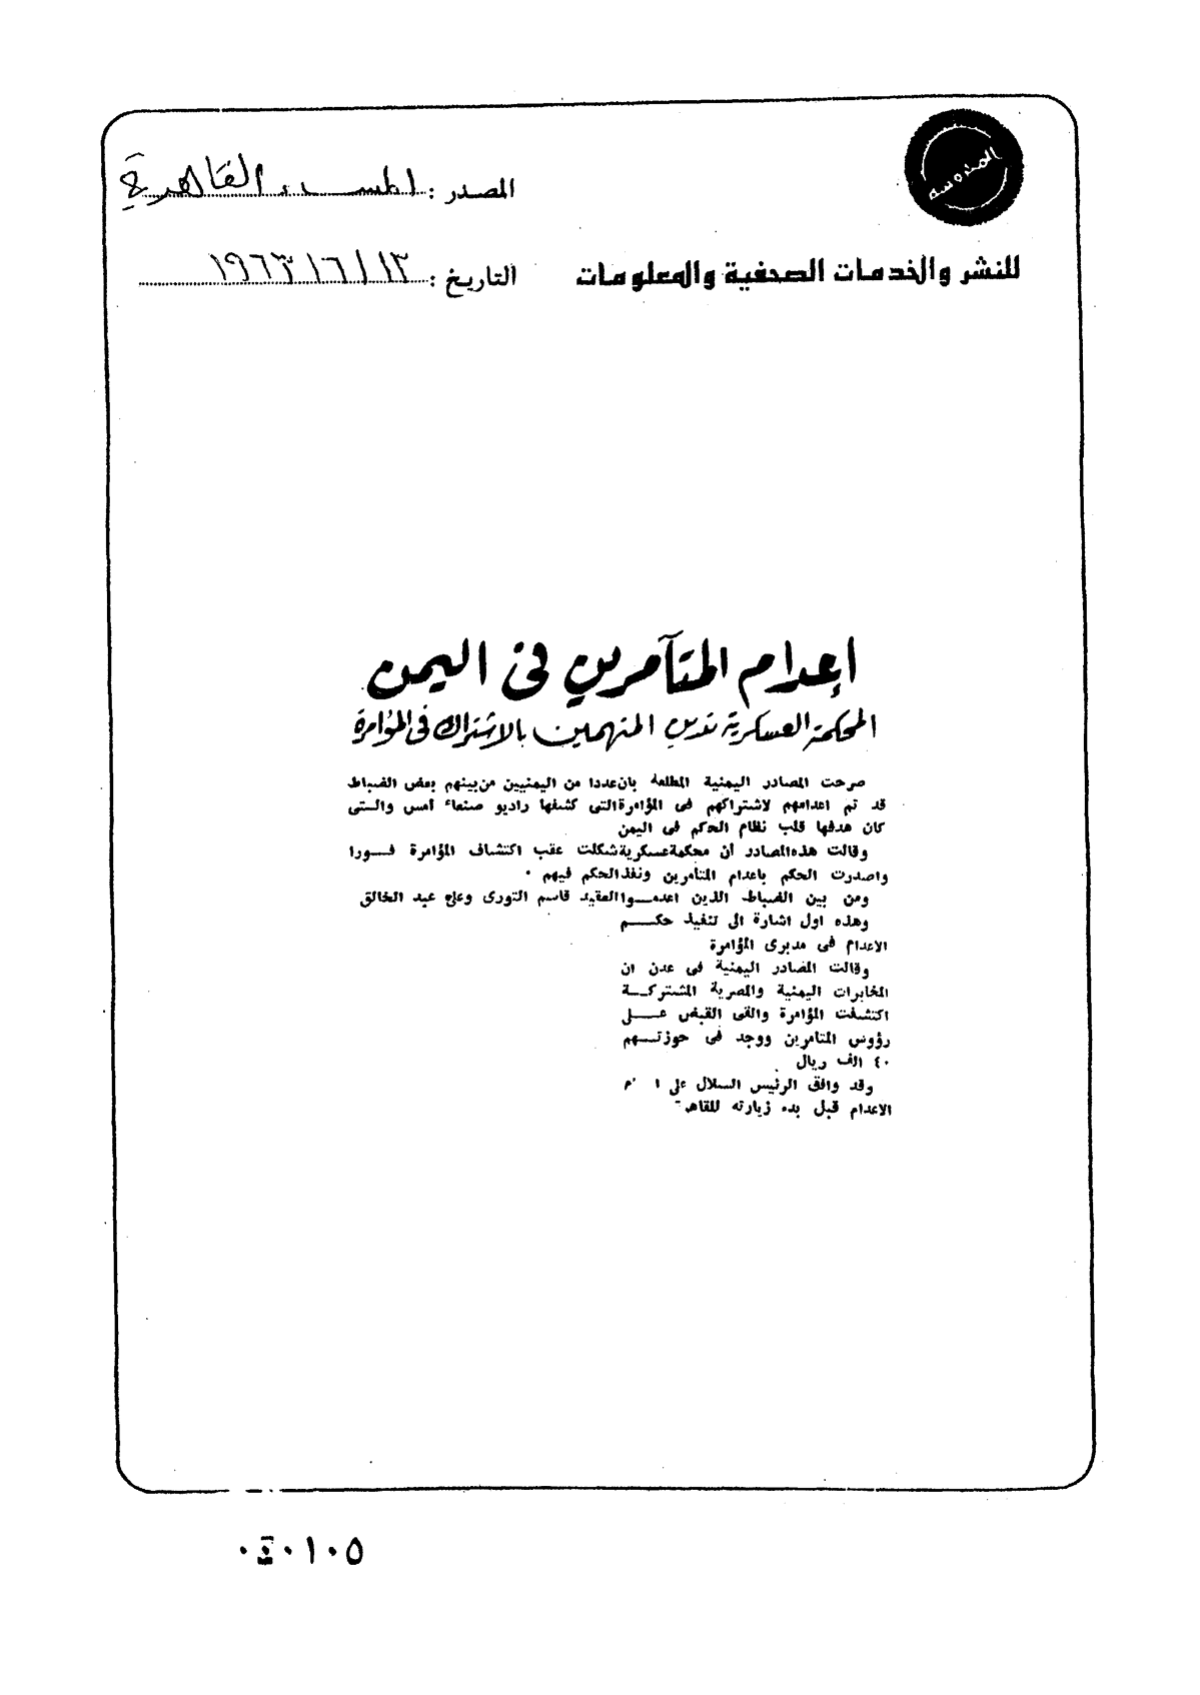 المدوسه
المصدر : المساء القاهرية
للنشر والخدمات الصحفية والمعلومات
التاريخ : ١٩٦٣/٦/١٣
إعدام المتآمرين فى اليمن
المحكمة العسكرية تدين المتهمين بالاشتراك فى المؤامرة
صرحت المصادر اليمنية المطلعة بان عددا من اليمنيين من بينهم بعض الضباط
قد تم اعدامهم لاشتراكهم فى المؤامرة التى كشفها راديو صنعاء امس والتى
كان هدفها قلب نظام الحكم فى اليمن
وقالت هذه المصادر ان محكمة عسكرية شكلت عقب اكتشاف المؤامرة فورا
واصدرت الحكم باعدام المتأمرين ونفذ الحكم فيهم ٠
ومن بين الضباط الذين اعدموا العقيد قاسم الثورى وعلى عبد الخالق
وهذه اول اشارة الى تنفيذ حكم
الاعدام فى مدبرى المؤامرة
وقالت المصادر اليمنية فى عدن ان
المخابرات اليمنية والمصرية المشتركة
اكتشفت المؤامرة والقى القبض على
رؤوس المتامرين ووجد فى حوزتهم
٤٠ الف ريال
وقد وافق الرئيس السلال على
الاعدام قبل بدء زيارته